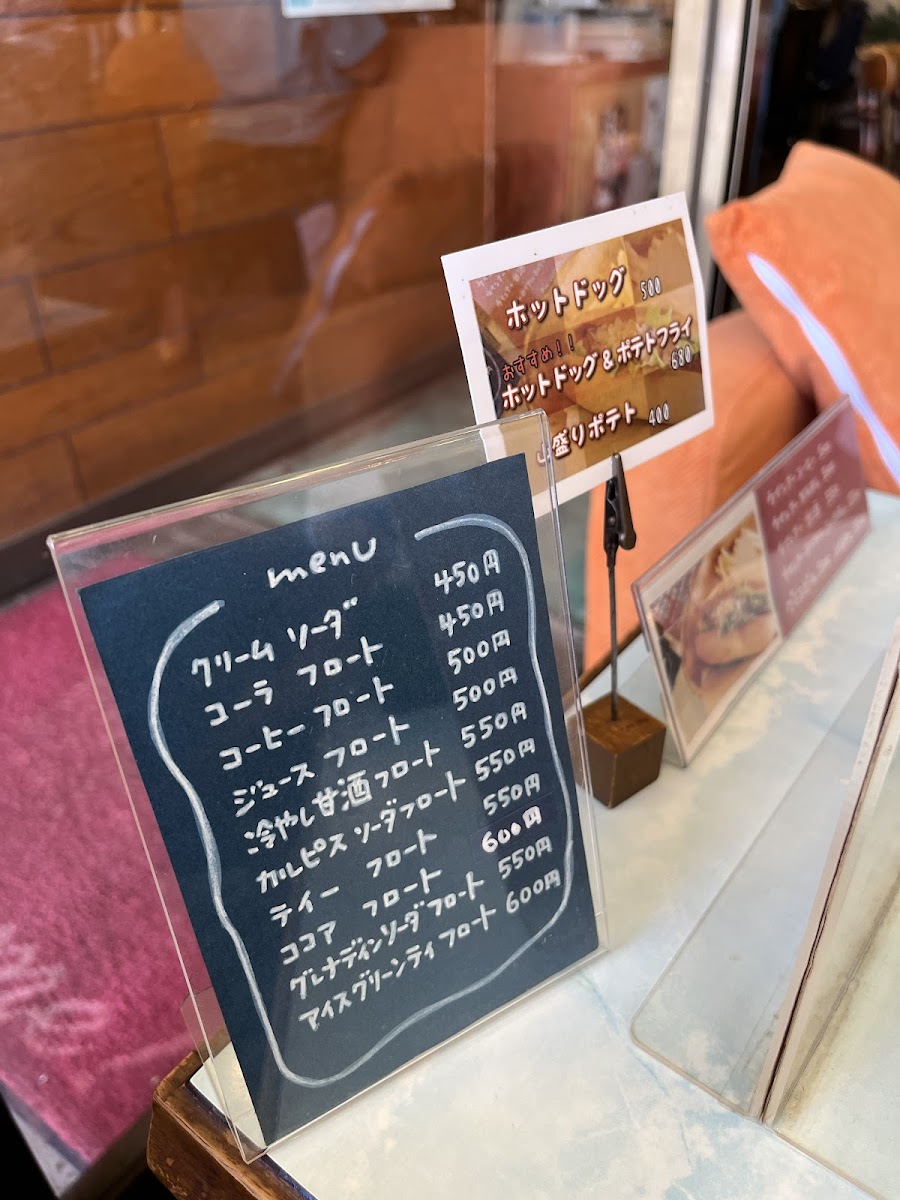 menu
クリーム ソーダ 450円
コーラ フロート 450円
コーヒー フロート 500円
ジュース フロート 500円
冷やし甘酒フロート 550円
カルピス ソーダフロート 550円
ティー フロート 550円
ココア フロート 600円
グレナディンソーダフロート 550円
アイスグリーンティフロート 600円
ホットドッグ 500
おすすめ！！
ホットドッグ＆ポテトフライ 680
盛りポテト 400